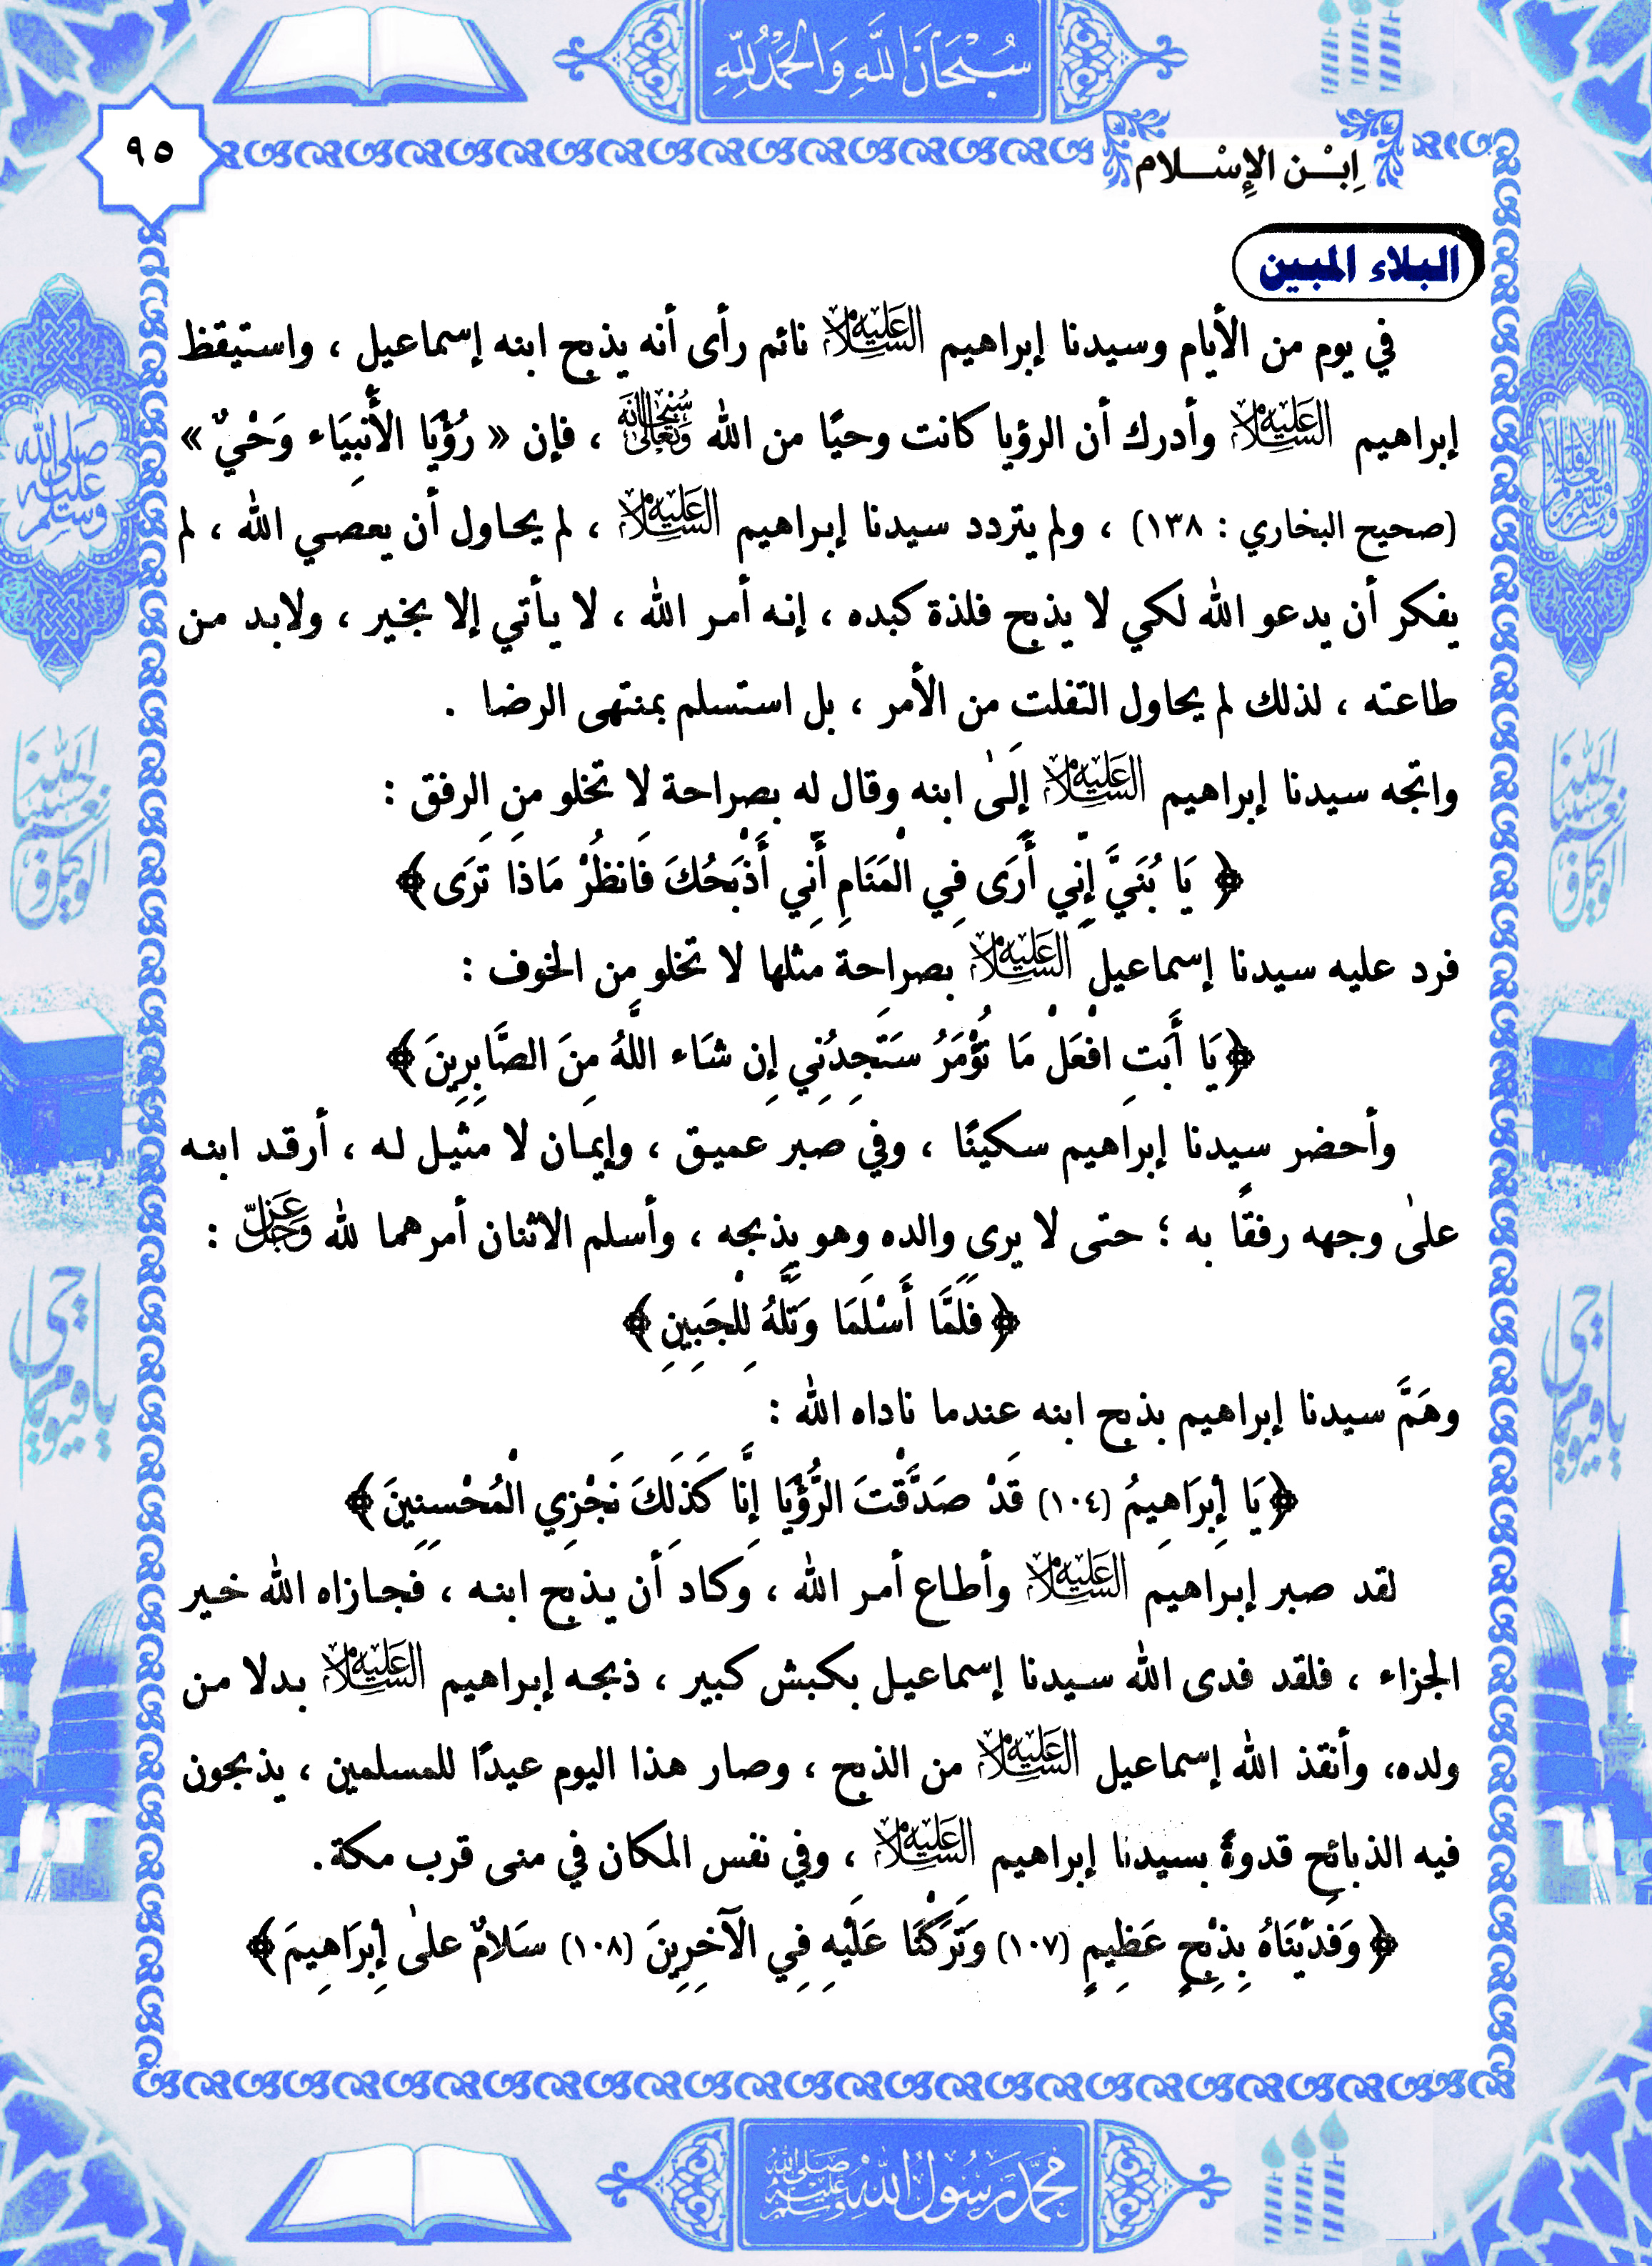 سُبْحَانَ اللَّهِ وَالْحَمْدُ لِلَّهِ
٩٥
اِبْـن الإِسْـلام
البلاء المبين
في يوم من الأيام وسيدنا إبراهيم عَلَيْهِ السَّلَام نائم رأى أنه يذبح ابنه إسماعيل ، واستيقظ
إبراهيم عَلَيْهِ السَّلَام وأدرك أن الرؤيا كانت وحيًا من الله سُبْحَانَهُ وَتَعَالَى ، فإن « رُؤْيَا الأَنبِيَاء وَحْيٌ »
(صحيح البخاري : ١٣٨) ، ولم يتردد سيدنا إبراهيم عَلَيْهِ السَّلَام ، لم يحاول أن يعصي الله ، لم
يفكر أن يدعو الله لكي لا يذبح فلذة كبده ، إنه أمر الله ، لا يأتي إلا بخير ، ولابد من
طاعته ، لذلك لم يحاول التفلت من الأمر ، بل استسلم بمنتهى الرضا .
واتجه سيدنا إبراهيم عَلَيْهِ السَّلَام إلَىٰ ابنه وقال له بصراحة لا تخلو من الرفق :
﴿ يَا بُنَيَّ إِنِّي أَرَى فِي الْمَنَامِ أَنِّي أَذْبَحُكَ فَانظُرْ مَاذَا تَرَى ﴾
فرد عليه سيدنا إسماعيل عَلَيْهِ السَّلَام بصراحة مثلها لا تخلو من الخوف :
﴿ يَا أَبَتِ افْعَلْ مَا تُؤْمَرُ سَتَجِدُنِي إِن شَاء اللَّهُ مِنَ الصَّابِرِينَ ﴾
وأحضر سيدنا إبراهيم سكينًا ، وفي صبر عميق ، وإيمان لا مثيل له ، أرقد ابنه
علىٰ وجهه رفقًا به ؛ حتى لا يرى والده وهو يذبحه ، وأسلم الاثنان أمرهما لله عَزَّ وَجَلَّ :
﴿ فَلَمَّا أَسْلَمَا وَتَلَّهُ لِلْجَبِينِ ﴾
وهَمَّ سيدنا إبراهيم بذبح ابنه عندما ناداه الله :
﴿ يَا إِبْرَاهِيمُ (١٠٤) قَدْ صَدَّقْتَ الرُّؤْيَا إِنَّا كَذَلِكَ نَجْزِي الْمُحْسِنِينَ ﴾
لقد صبر إبراهيم عَلَيْهِ السَّلَام وأطاع أمر الله ، وكاد أن يذبح ابنه ، فجازاه الله خير
الجزاء ، فلقد فدى الله سيدنا إسماعيل بكبش كبير ، ذبحه إبراهيم عَلَيْهِ السَّلَام بدلا من
ولده، وأنقذ الله إسماعيل عَلَيْهِ السَّلَام من الذبح ، وصار هذا اليوم عيدًا للمسلمين ، يذبحون
فيه الذبائح قدوةً بسيدنا إبراهيم عَلَيْهِ السَّلَام ، وفي نفس المكان في منى قرب مكة.
﴿ وَفَدَيْنَاهُ بِذِبْحٍ عَظِيمٍ (١٠٧) وَتَرَكْنَا عَلَيْهِ فِي الْآخِرِينَ (١٠٨) سَلامٌ علىٰ إِبْرَاهِيمَ ﴾
صلى الله عليه وسلم
حسبنا الله ونعم الوكيل
حسبنا الله ونعم الوكيل
يا حي يا قيوم
يا حي يا قيوم
مُحَمَّد رَسُولُ اللَّه صلى الله عليه وسلم